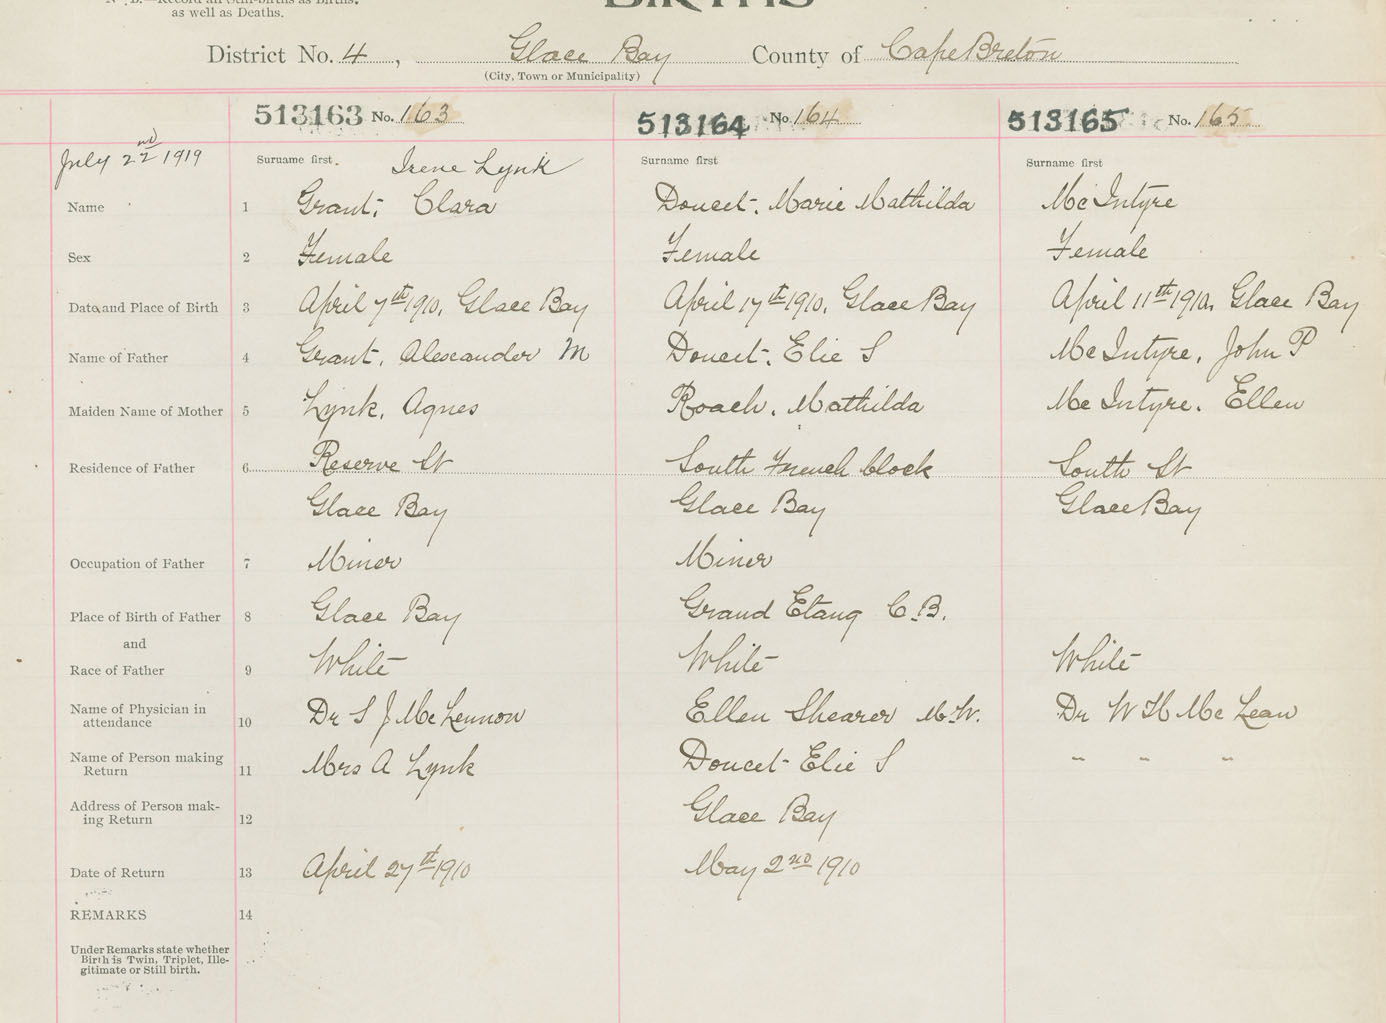 N.B.—Record all Still-births as Births,
as well as Deaths.
BIRTHS
District No. 4, Glace Bay County of Cape Breton
(City, Town or Municipality)
513163 No. 163 513164 No. 164 513165 No. 165
July 22nd 1919
Surname first. Irene Lynk Surname first Surname first
Name 1 Grant, Clara Doucet, Marie Mathilda McIntyre
Sex 2 Female Female Female
Date and Place of Birth 3 April 7th 1910, Glace Bay April 17th 1910, Glace Bay April 11th 1910, Glace Bay
Name of Father 4 Grant, Alexander M Doucet, Elie S McIntyre, John P
Maiden Name of Mother 5 Lynk, Agnes Roach, Mathilda McIntyre, Ellen
Residence of Father 6 Reserve St South French block South St
Glace Bay Glace Bay Glace Bay
Occupation of Father 7 Miner Miner
Place of Birth of Father 8 Glace Bay Grand Etang C.B.
and
Race of Father 9 White White White
Name of Physician in
attendance 10 Dr S J McLennon Ellen Shearer M.W. Dr W H McLean
Name of Person making
Return 11 Mrs A Lynk Doucet Elie S " " "
Address of Person mak-
ing Return 12 Glace Bay
Date of Return 13 April 27th 1910 May 2nd 1910
REMARKS 14
Under Remarks state whether
Birth is Twin, Triplet, Ille-
gitimate or Still birth.